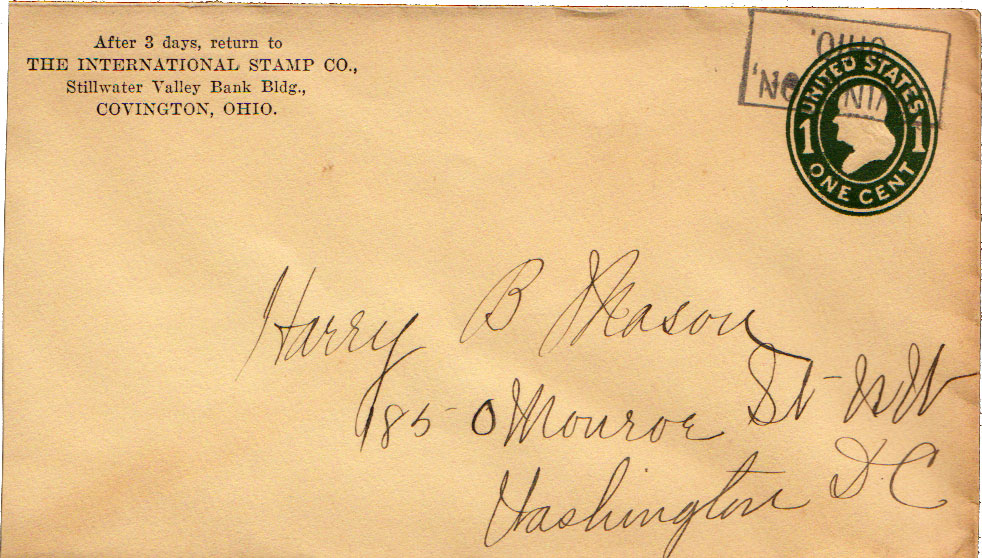 After 3 days, return to
THE INTERNATIONAL STAMP CO.,
Stillwater Valley Bank Bldg.,
COVINGTON, OHIO.
OHIO.
UNITED STATES
1 1
ONE CENT
Harry B Mason
1850 Monroe St NW
Washington D C